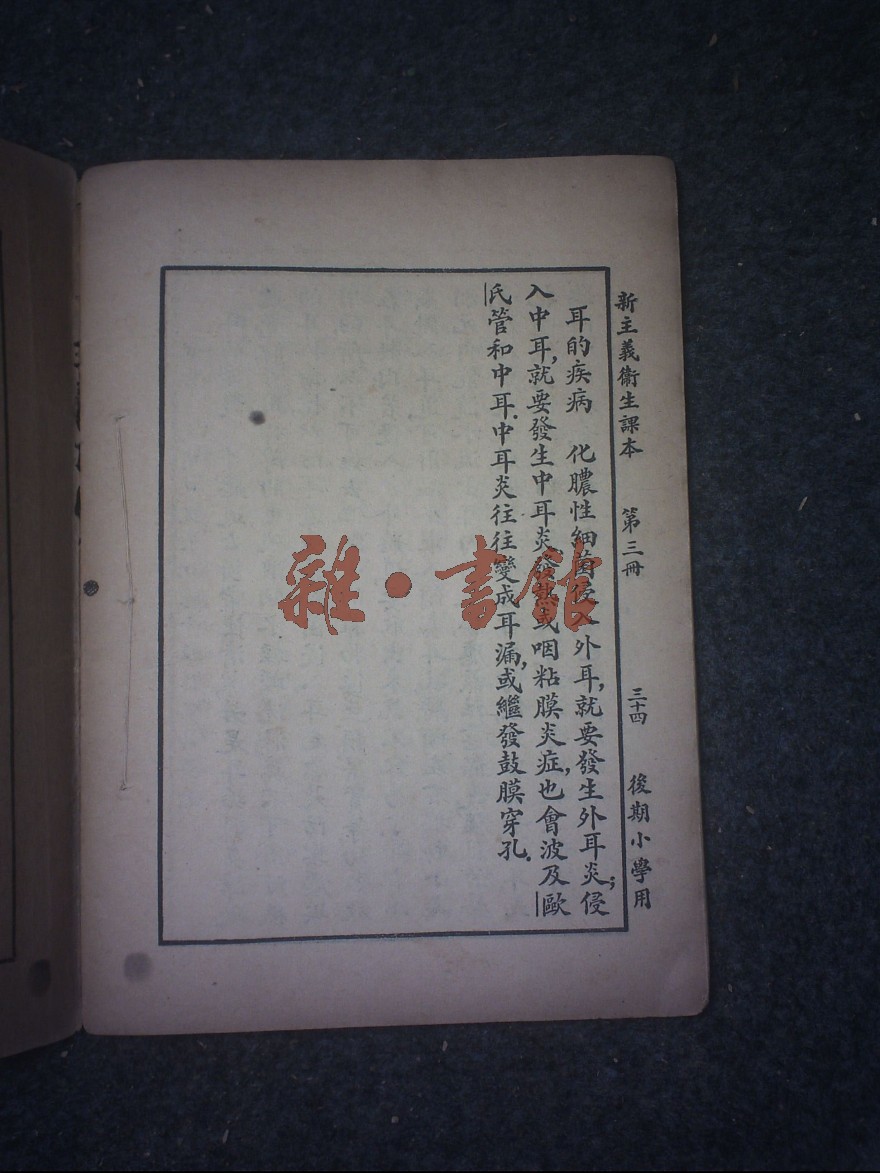 新主義衞生課本 第三冊 三十四 後期小學用
耳的疾病 化膿性細菌侵入外耳,就要發生外耳炎;侵
入中耳,就要發生中耳炎.發熱或咽粘膜炎症,也會波及歐
氏管和中耳.中耳炎往往變成耳漏,或繼發鼓膜穿孔.
雜·書館